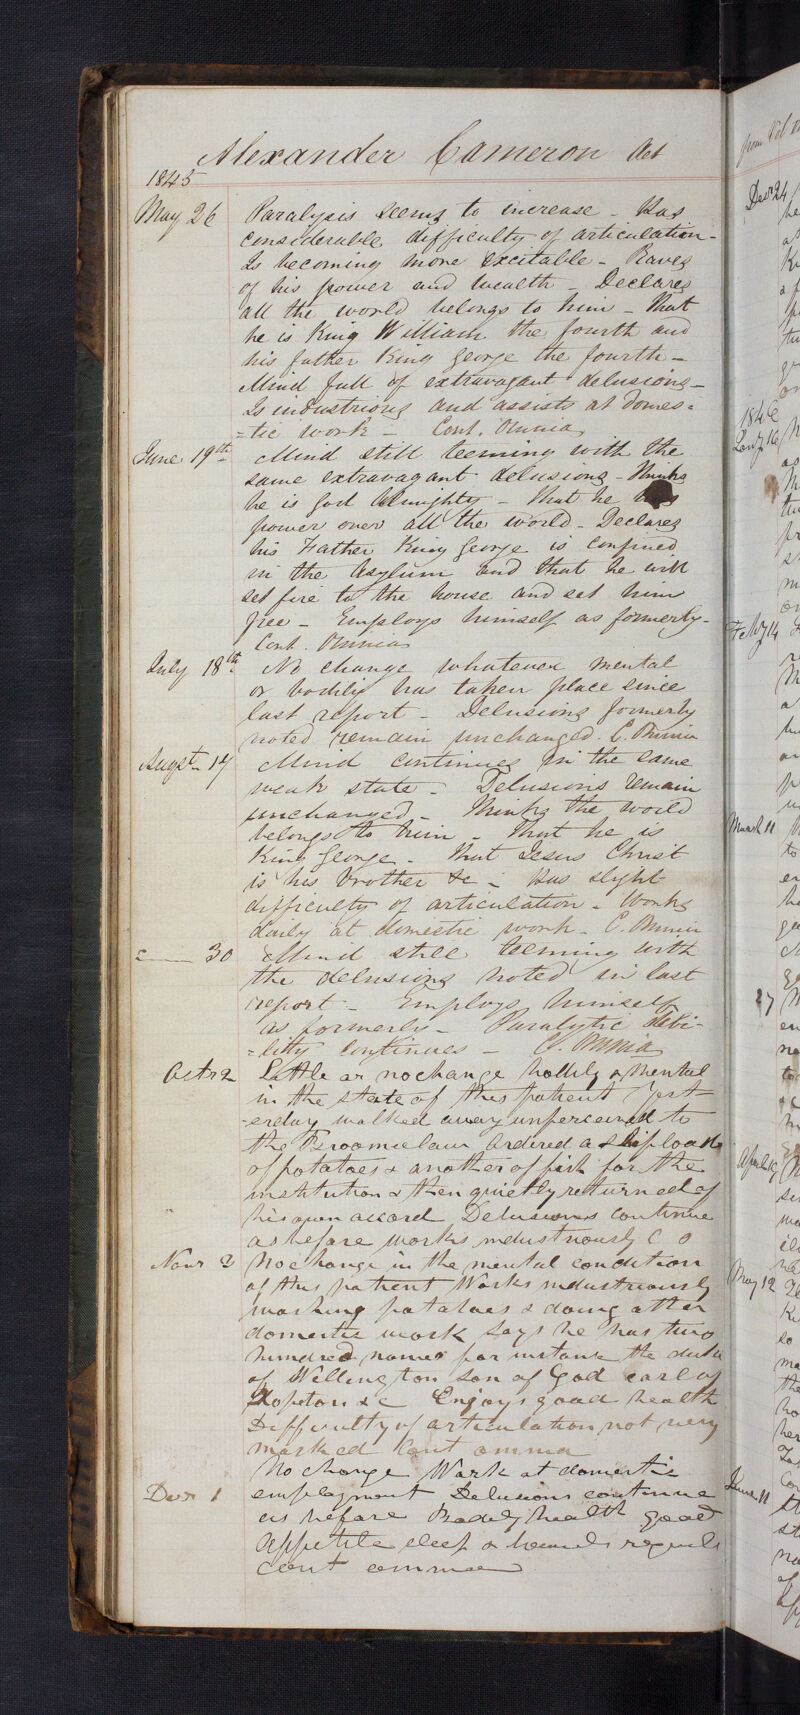 Alexander Cameron Act
1845
May 26 Paralysis seems to increase - Has
considerable difficulty of articulation -
Is becoming more excitable - Raves
of his power and wealth - Declares
all the world belongs to him - That
he is King William the fourth and
his father King George the fourth -
Mind full of extravagant delusions -
Is industrious and assists at domes-
=tic work - Cont. Omnia
June 19th Mind still teeming with the
same extravagant delusions - Thinks
he is God Almighty - that he has
power over all the world - Declares
his Father King George is confined
in the Asylum and that he will
set fire to the house and set him
free - Employs himself as formerly -
Cont. Omnia
July 18th No change whatever mental
or bodily has taken place since
last report - Delusions formerly
noted remain unchanged. C. Omnia
Augst 17 Mind continues in the same
weak state - Delusions remain
unchanged - Thinks the world
belongs to him - That he is
King George - That Jesus Christ
is his brother &c - Has slight
difficulty of articulation - Works
daily at domestic work - C. Omnia
" 30 Mind still teeming with
the delusions noted in last
report - Employs himself
as formerly - Paralytic debi-
=lity continues - C. Omnia
Octr 2 Little or no change bodily or mental
in the state of this patient Yest-
-erday walked away unperceived to
the Broomielaw ordered a shipload
of potatoes & another of fish for the
institution & then quietly returned of
his own accord Delusions continue
as before works industriously C O
Novr 2 No change in the mental condition
of this patient Works industriously
washing potatoes & doing other
domestic work Says he has two
hundred names for instance the duke
of Wellington son of God earl of
Hopeton &c Enjoys good health
Difficulty of articulation not very
marked Cont omnia
No change Work at domestic
Decr 1 employment Delusions continue
as before Bodily health good
appetite sleep & bowels regular
cont omnia
from Fol
Decr 24
1846
Jany 16
Feby 14
March 11
27
April 19
May 12
June 11